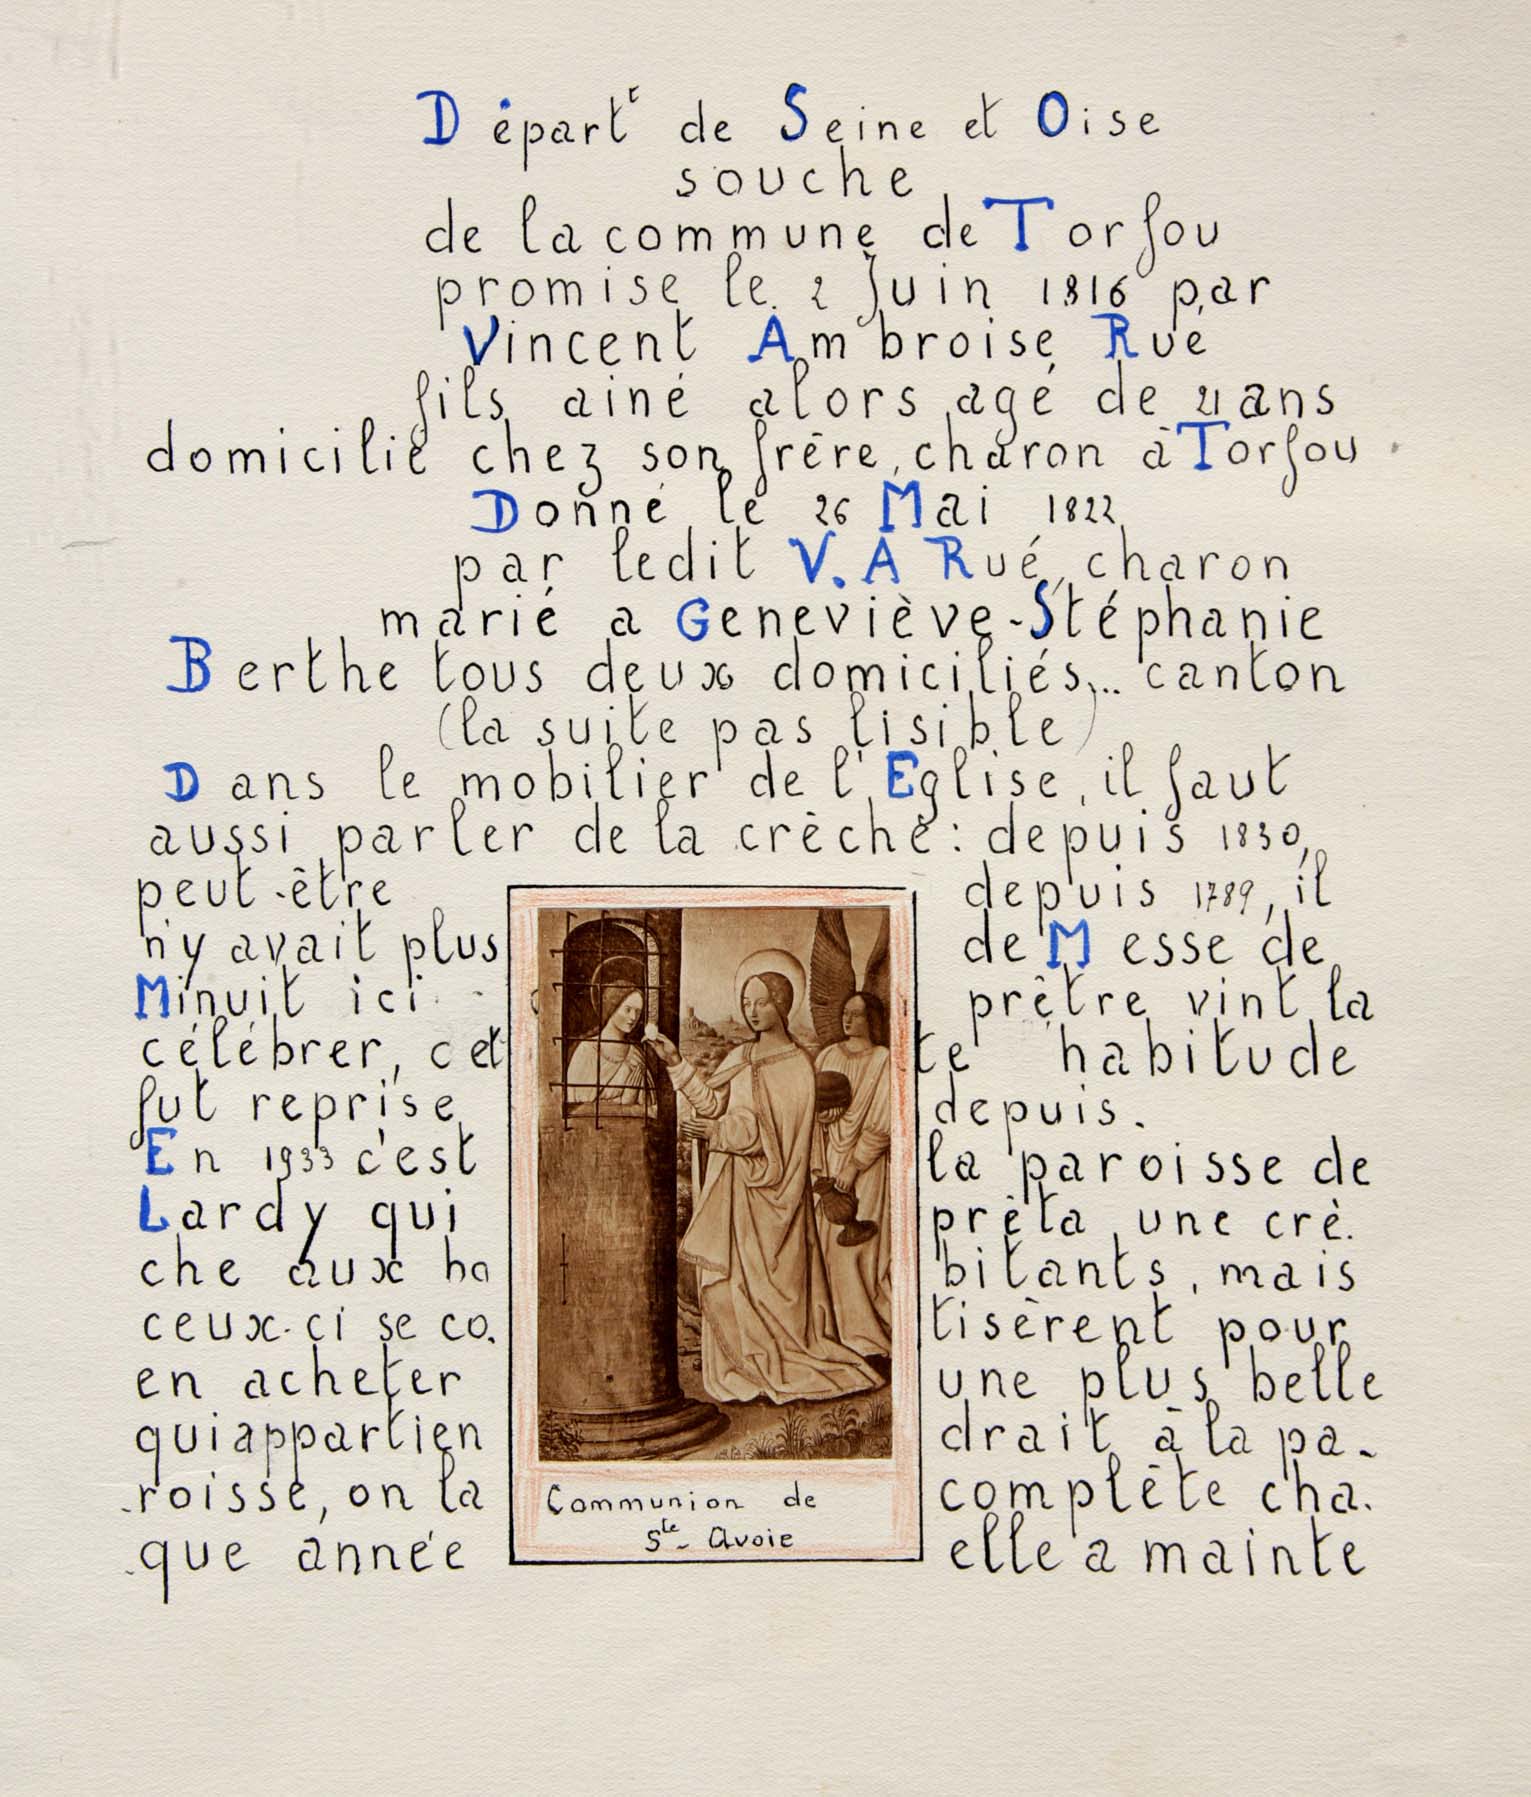 Départᵗ de Seine et Oise
souche
de la commune de Torfou
promise le 2 Juin 1816 par
Vincent Ambroise Rué
fils ainé alors agé de 21 ans
domicilié chez son frère, charon à Torfou
Donné le 26 Mai 1822
par ledit V. A Rué, charon
marié a Geneviève-Stéphanie
Berthe tous deux domiciliés... canton
(la suite pas lisible)
Dans le mobilier de l'Eglise, il faut
aussi parler de la crèche : depuis 1830,
peut-être depuis 1789, il
n'y avait plus de Messe de
Minuit ici prêtre vint la
célébrer, cette habitude
fut reprise depuis.
En 1933 c'est la paroisse de
Lardy qui prêta une crè-
che aux habitants, mais
ceux-ci se co-tisèrent pour
en acheter une plus belle
qui appartiendrait à la pa-
roisse, on la complète cha-
que année elle a mainte
Communion de
Ste Avoie